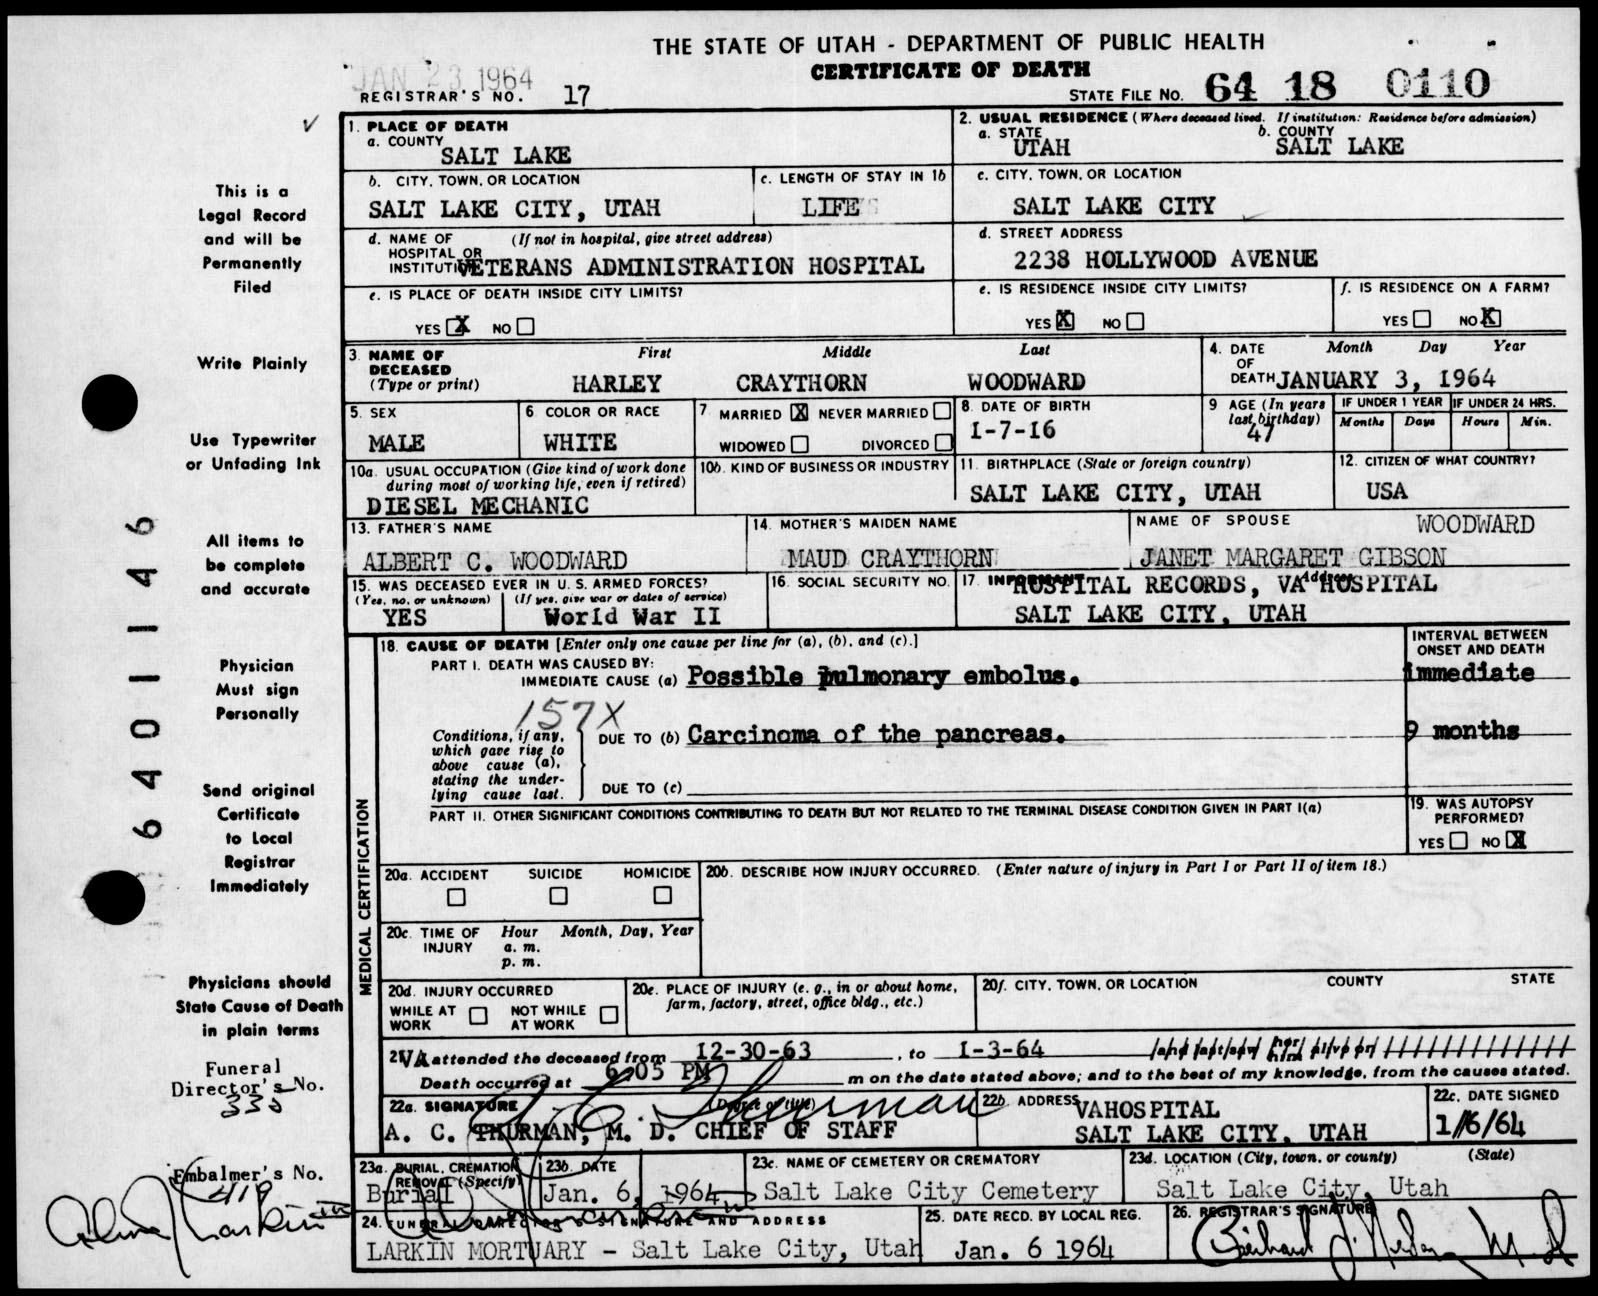 THE STATE OF UTAH - DEPARTMENT OF PUBLIC HEALTH
CERTIFICATE OF DEATH
JAN 23 1964
REGISTRAR'S NO. 17
STATE FILE NO. 64 18 0110
This is a
Legal Record
and will be
Permanently
Filed
Write Plainly
Use Typewriter
or Unfading Ink
All items to
be complete
and accurate
Physician
Must sign
Personally
Send original
Certificate
to Local
Registrar
Immediately
Physicians should
State Cause of Death
in plain terms
Funeral
Director's No.
Embalmer's No.
419
6401146
1. PLACE OF DEATH
a. COUNTY
SALT LAKE
2. USUAL RESIDENCE (Where deceased lived. If institution: Residence before admission)
a. STATE
UTAH
b. COUNTY
SALT LAKE
b. CITY, TOWN, OR LOCATION
SALT LAKE CITY, UTAH
c. LENGTH OF STAY IN 1b
LIFE
c. CITY, TOWN, OR LOCATION
SALT LAKE CITY
d. NAME OF HOSPITAL OR INSTITUTION (If not in hospital, give street address)
VETERANS ADMINISTRATION HOSPITAL
d. STREET ADDRESS
2238 HOLLYWOOD AVENUE
e. IS PLACE OF DEATH INSIDE CITY LIMITS?
YES X NO
e. IS RESIDENCE INSIDE CITY LIMITS?
YES X NO
f. IS RESIDENCE ON A FARM?
YES NO X
3. NAME OF DECEASED (Type or print)
First Middle Last
HARLEY CRAYTHORN WOODWARD
4. DATE OF DEATH Month Day Year
JANUARY 3, 1964
5. SEX
MALE
6. COLOR OR RACE
WHITE
7. MARRIED X NEVER MARRIED
WIDOWED DIVORCED
8. DATE OF BIRTH
1-7-16
9 AGE (In years last birthday)
47
IF UNDER 1 YEAR IF UNDER 24 HRS.
Months Days Hours Min.
10a. USUAL OCCUPATION (Give kind of work done during most of working life, even if retired)
DIESEL MECHANIC
10b. KIND OF BUSINESS OR INDUSTRY
11. BIRTHPLACE (State or foreign country)
SALT LAKE CITY, UTAH
12. CITIZEN OF WHAT COUNTRY?
USA
13. FATHER'S NAME
ALBERT C. WOODWARD
14. MOTHER'S MAIDEN NAME
MAUD CRAYTHORN
NAME OF SPOUSE
WOODWARD
JANET MARGARET GIBSON
15. WAS DECEASED EVER IN U. S. ARMED FORCES?
(Yes, no, or unknown) (If yes, give war or dates of service)
YES World War II
16. SOCIAL SECURITY NO.
17. INFORMANT Address
HOSPITAL RECORDS, VA HOSPITAL
SALT LAKE CITY, UTAH
MEDICAL CERTIFICATION
18. CAUSE OF DEATH [Enter only one cause per line for (a), (b), and (c).]
INTERVAL BETWEEN ONSET AND DEATH
PART I. DEATH WAS CAUSED BY:
IMMEDIATE CAUSE (a) Possible pulmonary embolus.
immediate
157X
Conditions, if any, which gave rise to above cause (a), stating the underlying cause last.
DUE TO (b) Carcinoma of the pancreas.
9 months
DUE TO (c)
PART II. OTHER SIGNIFICANT CONDITIONS CONTRIBUTING TO DEATH BUT NOT RELATED TO THE TERMINAL DISEASE CONDITION GIVEN IN PART I(a)
19. WAS AUTOPSY PERFORMED?
YES NO X
20a. ACCIDENT SUICIDE HOMICIDE
20b. DESCRIBE HOW INJURY OCCURRED. (Enter nature of injury in Part I or Part II of item 18.)
20c. TIME OF INJURY Hour Month, Day, Year
a. m.
p. m.
20d. INJURY OCCURRED
WHILE AT WORK NOT WHILE AT WORK
20e. PLACE OF INJURY (e. g., in or about home, farm, factory, street, office bldg., etc.)
20f. CITY, TOWN, OR LOCATION COUNTY STATE
21. VA attended the deceased from 12-30-63, to 1-3-64 and last saw her him alive on
Death occurred at 6:05 PM m on the date stated above; and to the best of my knowledge, from the causes stated.
22a. SIGNATURE (Degree or title)
A C Thurman
A. C. THURMAN, M. D. CHIEF OF STAFF
22b. ADDRESS
VAHOSPITAL
SALT LAKE CITY, UTAH
22c. DATE SIGNED
1/6/64
23a. BURIAL, CREMATION, REMOVAL (Specify)
Burial
23b. DATE
Jan. 6, 1964
23c. NAME OF CEMETERY OR CREMATORY
Salt Lake City Cemetery
23d. LOCATION (City, town, or county) (State)
Salt Lake City, Utah
24. FUNERAL DIRECTOR'S SIGNATURE AND ADDRESS
LARKIN MORTUARY - Salt Lake City, Utah
25. DATE RECD. BY LOCAL REG.
Jan. 6 1964
26. REGISTRAR'S SIGNATURE